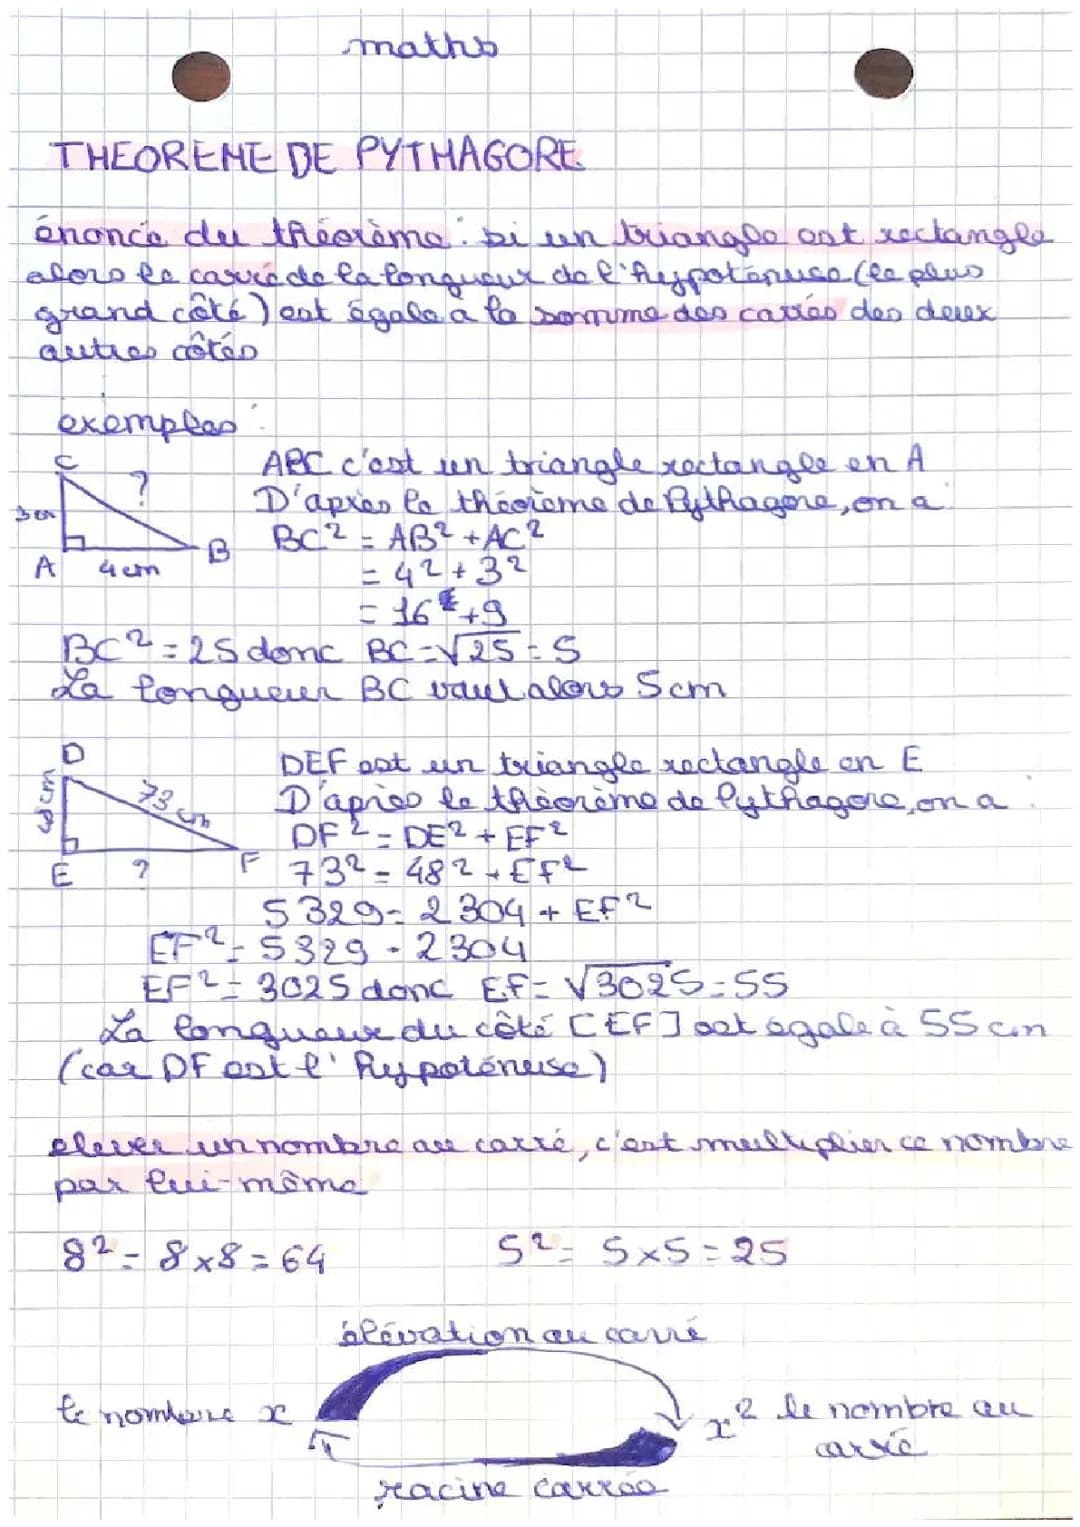 maths
THEOREME DE PYTHAGORE
énoncé du théorème : si un triangle est rectangle
alors le carré de la longueur de l'hypoténuse (le plus
grand côté) est égale a la somme des carrés des deux
autres côtés
exemples :
C
?
3cm
A 4cm B
ABC c'est un triangle rectangle en A
D'après le théorème de Pythagore, on a :
BC² = AB² + AC²
= 4² + 3²
= 16 + 9
BC² = 25 donc BC = √25 = 5
La longueur BC vaut alors 5cm
D
73 cm
E ? F
DEF est un triangle rectangle en E
D'après le théorème de Pythagore, on a :
DF² = DE² + EF²
73² = 48² + EF²
5329 = 2304 + EF²
EF² = 5329 - 2304
EF² = 3025 donc EF = √3025 = 55
La longueur du côté [EF] est égale à 55 cm
(car DF est l'hypoténuse)
elever un nombre au carré, c'est multiplier ce nombre
par lui-même
8² = 8 x 8 = 64 5² = 5 x 5 = 25
élévation au carré
le nombre x
x² le nombre au
carré
racine carrée